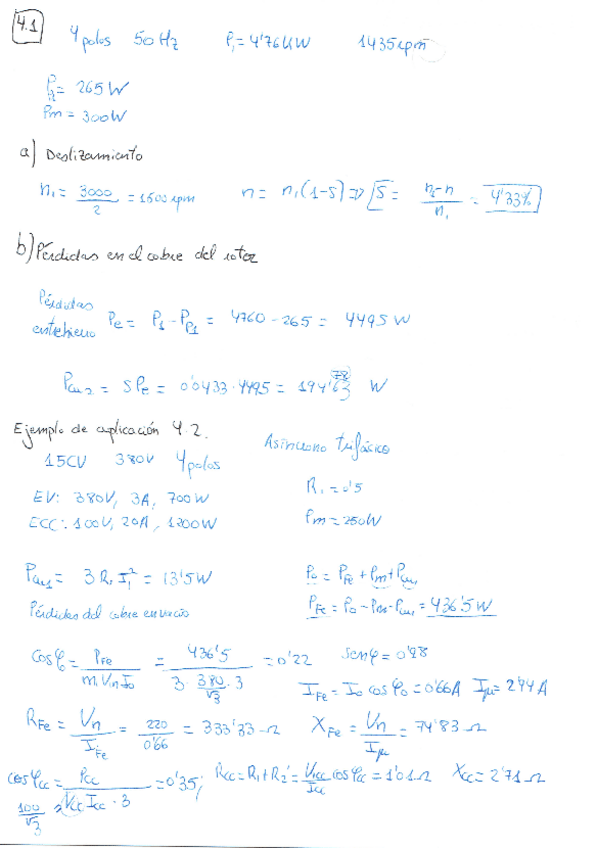 4.1
4 polos 50Hz P₁=4'76kW 1435rpm
P_p1 = 265W
Pm = 300W
a) Deslizamiento
n₁ = 3000/2 = 1500 rpm n = n₁(1-S) => S = (n₁-n)/n₁ = 4'33%
b) Pérdidas en el cobre del rotor
Pérdidas
entrehierro Pe = P₁ - P_p1 = 4760 - 265 = 4495 W
Pcu₂ = SPe = 0'0433·4495 = 194'63 78 W
Ejemplo de aplicación 4.2. Asíncrono trifásico
15CV 380V 4 polos
R₁ = 0'5
EV: 380V, 3A, 700W
Pm = 250W
ECC: 100V, 20A, 1200W
Pcu₁ = 3R₁I₁² = 13'5W P₀ = P_Fe + Pm + Pcu₁
Pérdidas del cobre en vacío P_Fe = P₀ - Pm - Pcu₁ = 436'5W
cosφ₀ = P_Fe/(m₁V₁nI₀) = 436'5/(3·380/√3·3) = 0'22 senφ = 0'98
I_Fe = I₀ cosφ₀ = 0'66A Iμ = 2'94A
R_Fe = V₁n/I_Fe = 220/0'66 = 333'33Ω X_Fe = V₁n/Iμ = 74'83Ω
cosφcc = Pcc/(Vcc Icc·3) = 0'35; Rcc = R₁+R₂' = Vcc/Icc cosφcc = 1'01Ω Xcc = 2'71Ω
100/√3